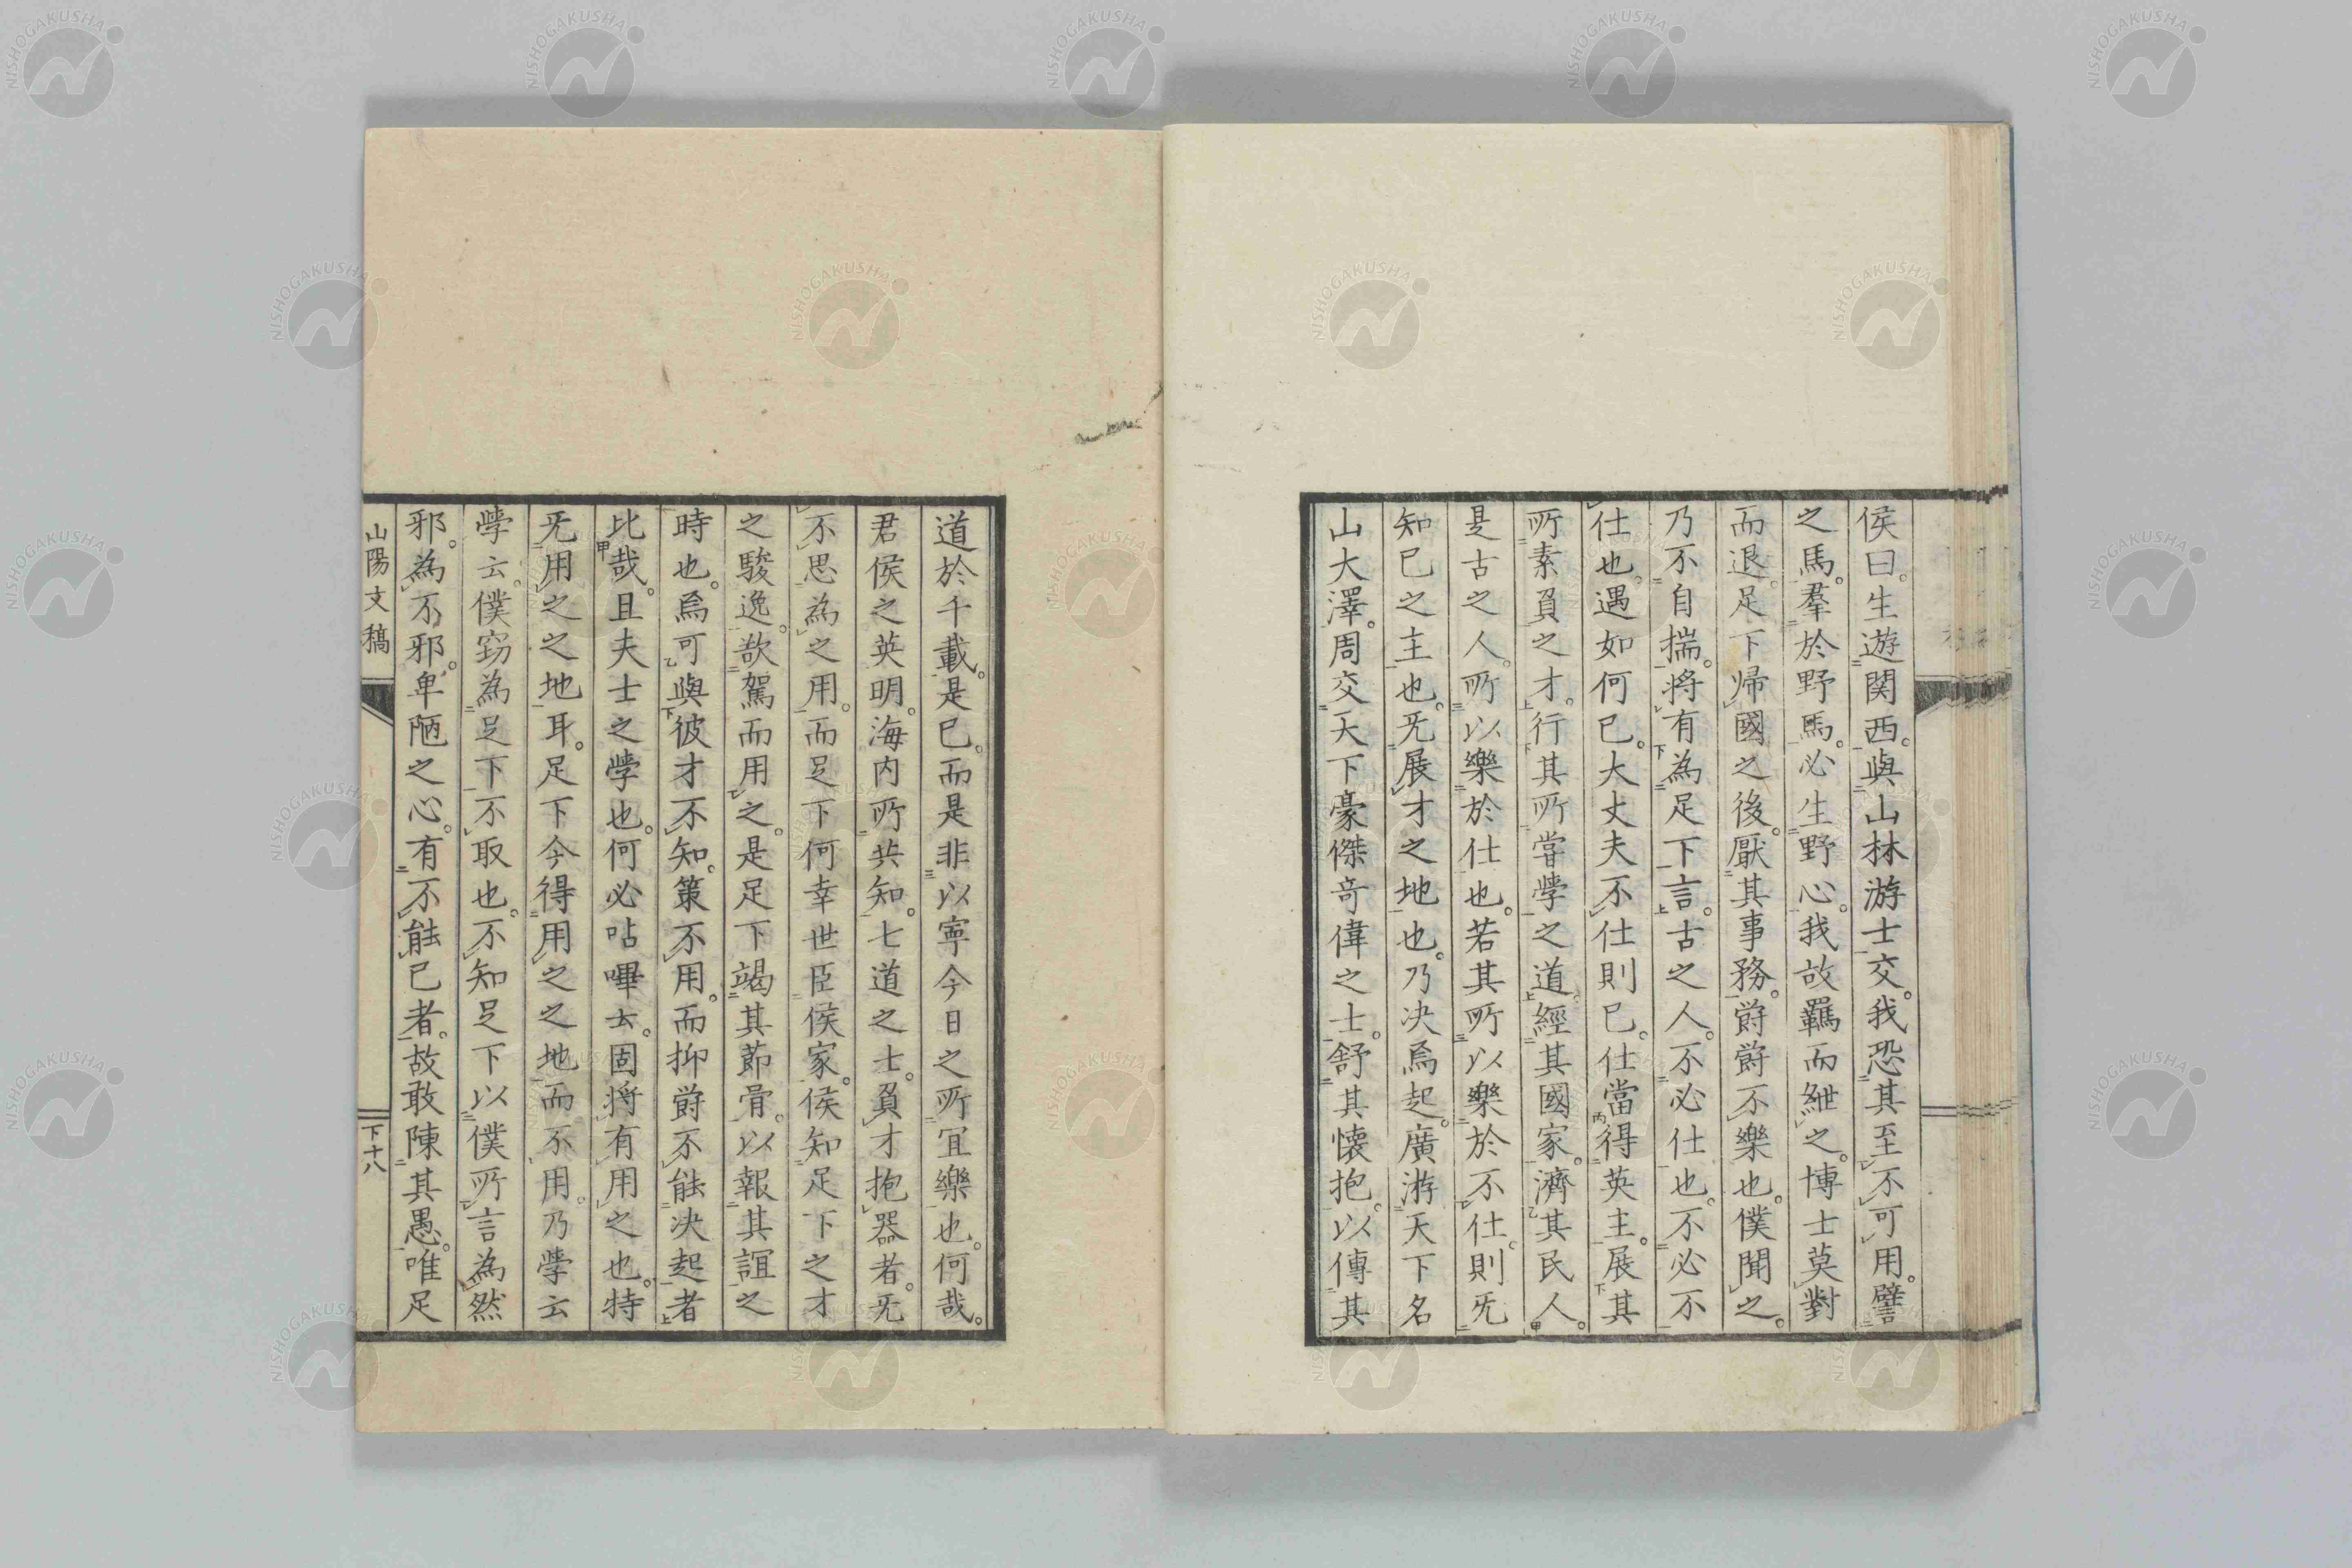 侯曰。生遊関西。與山林游士交。我恐其至不可用。譬
之馬。羣於野馬。必生野心。我故羈而紲之。博士莫對
而退。足下帰國之後。厭其事務。欝欝不樂也。僕聞之。
乃不自揣。將有為足下言。古之人。不必仕也。不必不
仕也。遇如何已。大丈夫不仕則已。仕當得英主。展其
所素負之才。行其所嘗學之道。經其國家。濟其民人。
是古之人。所以樂於仕也。若其所以樂於不仕。則无
知已之主也。无展才之地也。乃决焉起。廣游天下名
山大澤。周交天下豪傑奇偉之士。舒其懐抱。以傳其
道於千載。是已。而是非以寧今日之所宜樂也。何哉。
君侯之英明。海内所共知。七道之士。負才抱器者。无
不思為之用。而足下何幸世臣侯家。侯知足下之才
之駿逸。欲駕而用之。是足下竭其節骨。以報其誼之
時也。焉可與彼才不知。策不用。而抑欝不能决起者
比哉。且夫士之學也。何必呫嗶云。固將有用之也。特
无用之之地耳。足下今得用之之地而不用。乃學云
學云。僕窃為足下不取也。不知足下以僕所言為然
邪。為不邪。卑陋之心。有不能已者。故敢陳其愚。唯足
山陽文稿
下十八
NISHOGAKUSHA